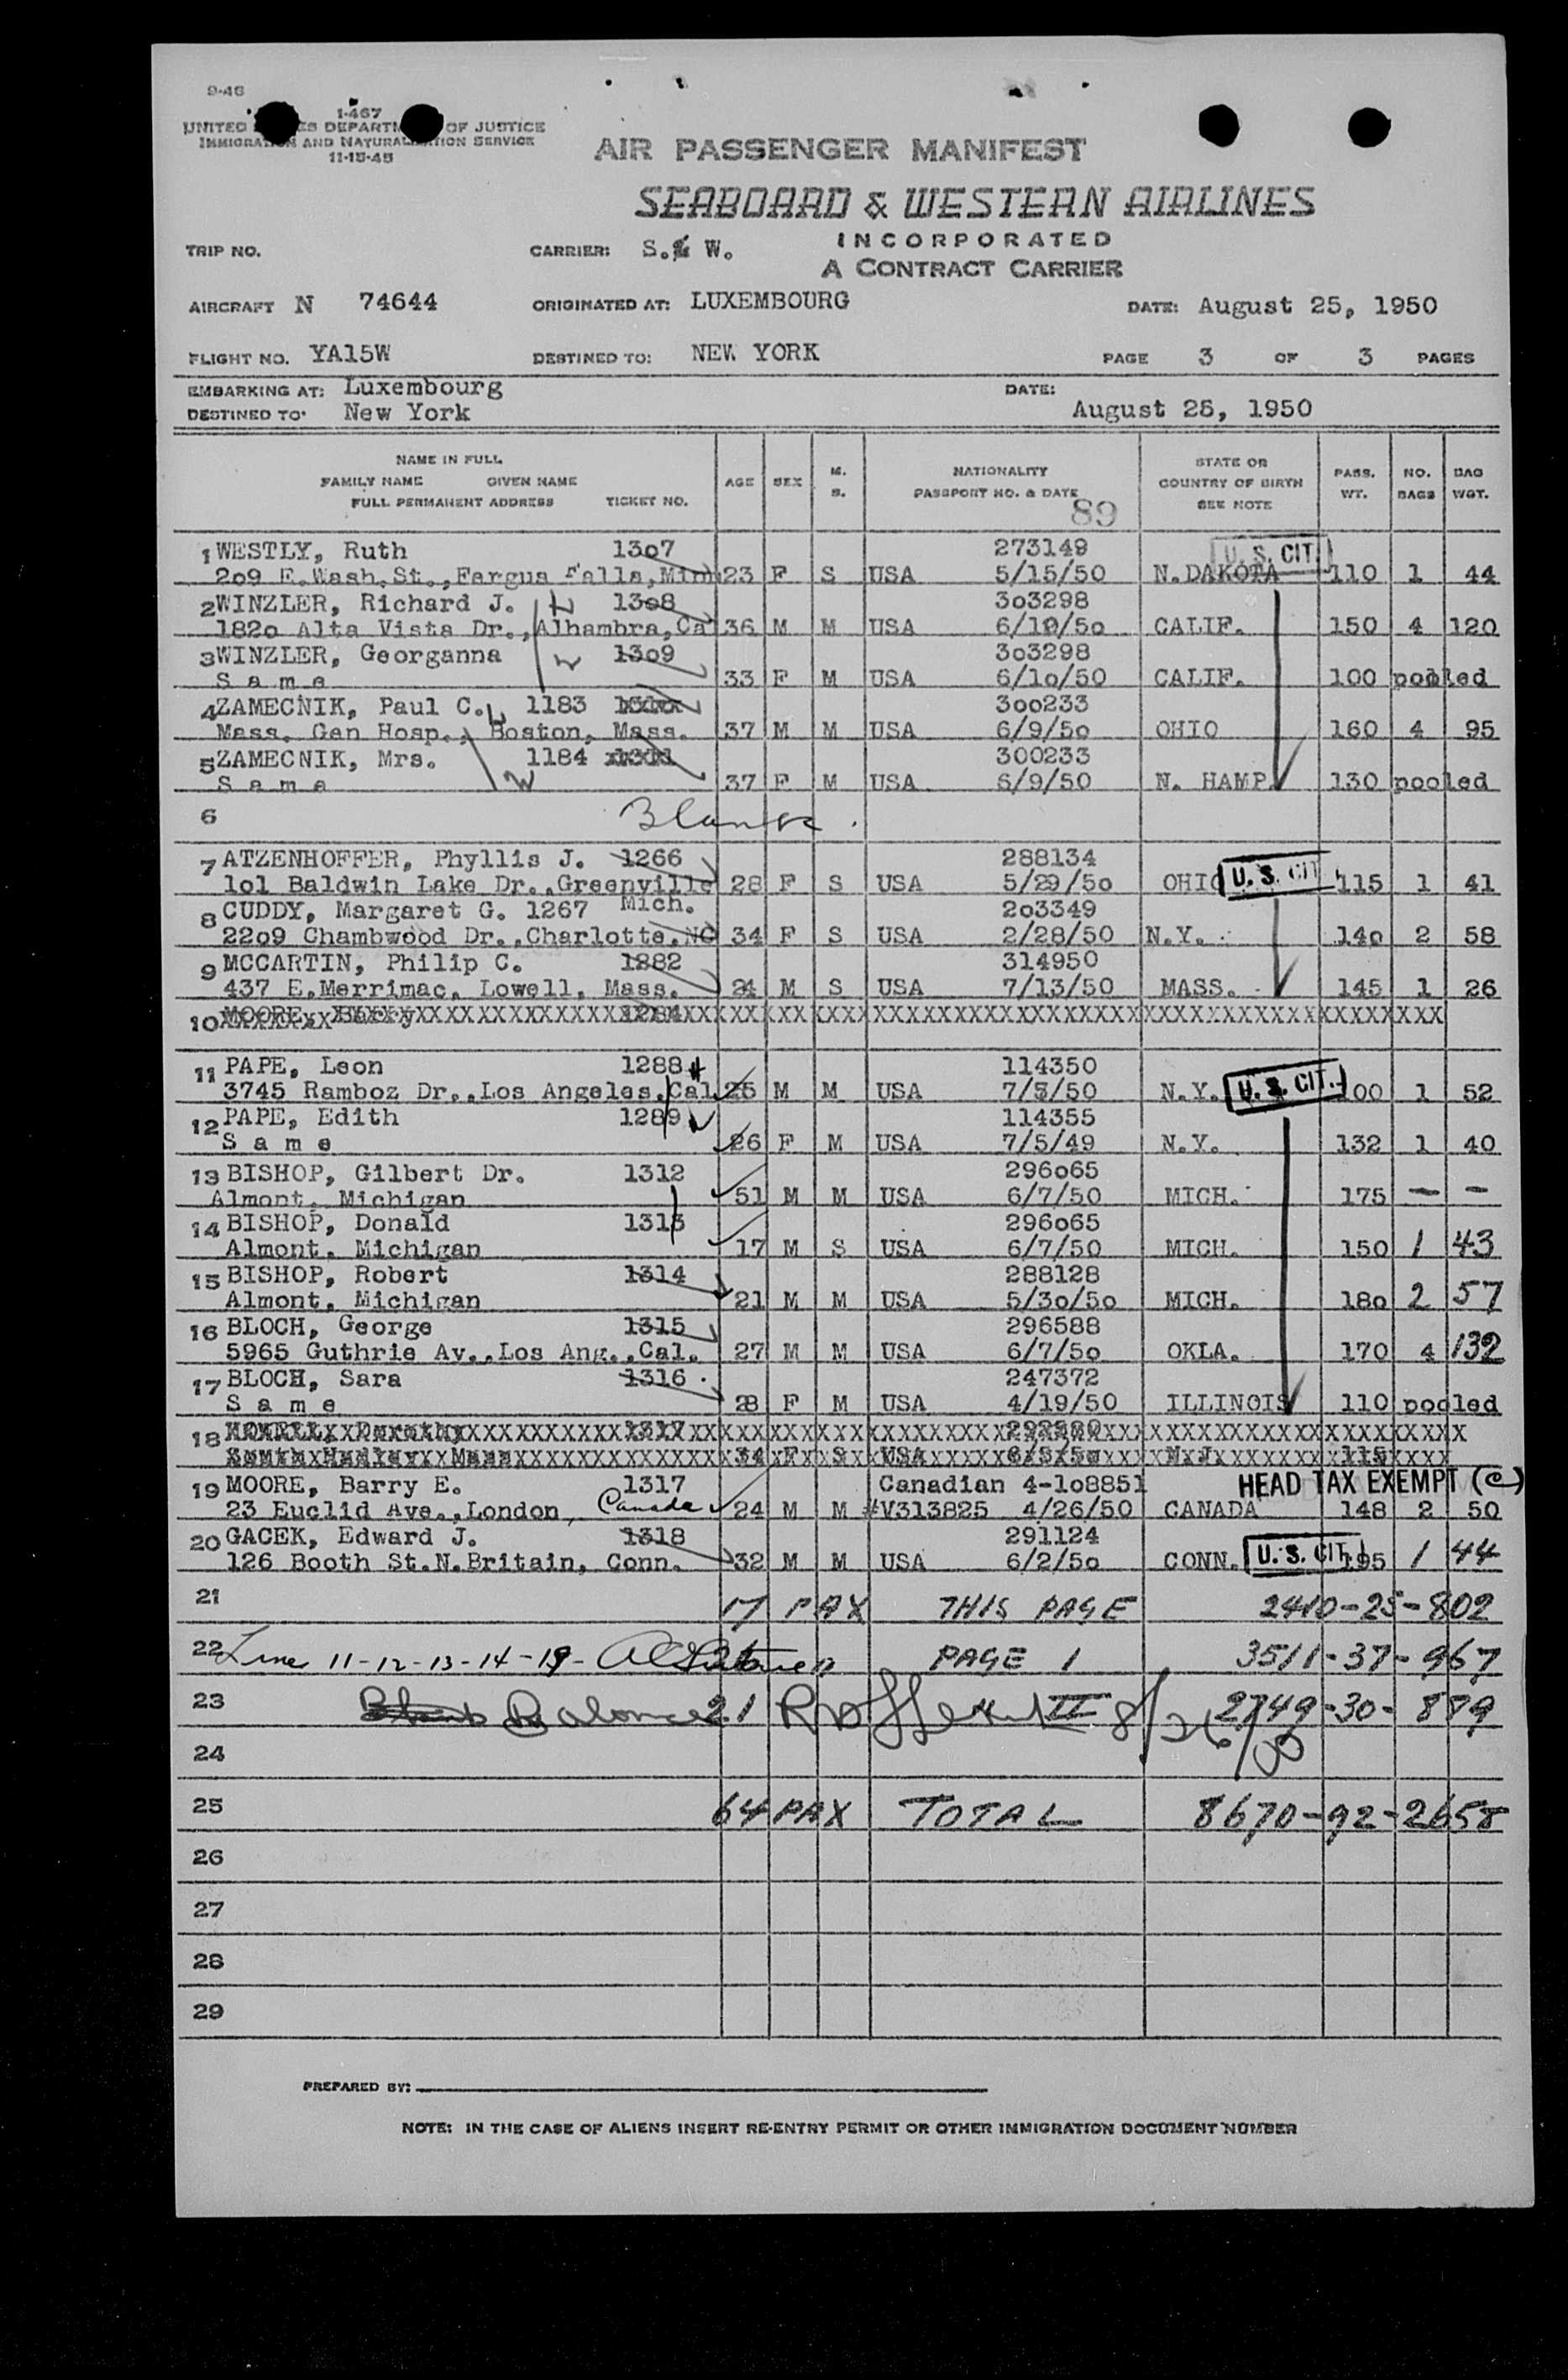 9-46
I-467
UNITED STATES DEPARTMENT OF JUSTICE
IMMIGRATION AND NATURALIZATION SERVICE
11-15-45
AIR PASSENGER MANIFEST
SEABOARD & WESTERN AIRLINES
INCORPORATED
A CONTRACT CARRIER
TRIP NO. CARRIER: S.& W.
AIRCRAFT N 74644 ORIGINATED AT: LUXEMBOURG DATE: August 25, 1950
FLIGHT NO. YA15W DESTINED TO: NEW YORK PAGE 3 OF 3 PAGES
EMBARKING AT: Luxembourg DATE:
DESTINED TO: New York August 25, 1950
NAME IN FULL
FAMILY NAME GIVEN NAME
FULL PERMANENT ADDRESS TICKET NO. AGE SEX M. S. NATIONALITY PASSPORT NO. & DATE STATE OR COUNTRY OF BIRTH SEE NOTE PASS. WT. NO. BAGS BAG WGT.
89
1 WESTLY, Ruth 1307 273149 U.S. CIT.
209 E.Wash.St.,Fergus Falls,Min 23 F S USA 5/15/50 N.DAKOTA 110 1 44
2 WINZLER, Richard J. 1308 303298
1820 Alta Vista Dr.,Alhambra,Ca 36 M M USA 6/10/50 CALIF. 150 4 120
3 WINZLER, Georganna 1309 303298
S a m e 33 F M USA 6/10/50 CALIF. 100 pooled
4 ZAMECNIK, Paul C. 1183 300233
Mass. Gen Hosp., Boston, Mass. 37 M M USA 6/9/50 OHIO 160 4 95
5 ZAMECNIK, Mrs. 1184 300233
S a m e 37 F M USA 6/9/50 N. HAMP. 130 pooled
6 Blank.
7 ATZENHOFFER, Phyllis J. 1266 288134
101 Baldwin Lake Dr.,Greenville 28 F S USA 5/29/50 OHIO U.S. CIT 115 1 41
8 CUDDY, Margaret G. 1267 Mich. 203349
2209 Chambwood Dr.,Charlotte,NC 34 F S USA 2/28/50 N.Y. 140 2 58
9 MCCARTIN, Philip C. 1282 314950
437 E.Merrimac, Lowell, Mass. 24 M S USA 7/13/50 MASS. 145 1 26
10 MOORE, Barry 1284
11 PAPE, Leon 1288 114350
3745 Ramboz Dr.,Los Angeles,Cal. 25 M M USA 7/5/50 N.Y. U.S. CIT. 100 1 52
12 PAPE, Edith 1289 114355
S a m e 26 F M USA 7/5/49 N.Y. 132 1 40
13 BISHOP, Gilbert Dr. 1312 296065
Almont, Michigan 51 M M USA 6/7/50 MICH. 175 — —
14 BISHOP, Donald 1313 296065
Almont, Michigan 17 M S USA 6/7/50 MICH. 150 1 43
15 BISHOP, Robert 1314 288128
Almont, Michigan 21 M M USA 5/30/50 MICH. 180 2 57
16 BLOCH, George 1315 296588
5965 Guthrie Av.,Los Ang.,Cal. 27 M M USA 6/7/50 OKLA. 170 4 132
17 BLOCH, Sara 1316 247372
S a m e 28 F M USA 4/19/50 ILLINOIS 110 pooled
18 Dorothy 1317
South Hadley, Mass 34 F S USA 6/5/50 N.J. 115
19 MOORE, Barry E. 1317 Canadian 4-108851 HEAD TAX EXEMPT (c)
23 Euclid Ave.,London, Canada 24 M M #V313825 4/26/50 CANADA 148 2 50
20 GACEK, Edward J. 1318 291124
126 Booth St.N.Britain, Conn. 32 M M USA 6/2/50 CONN. U.S. CIT. 195 1 44
21 17 PAX THIS PAGE 2410-25-802
22 Line 11-12-13-14-19- PAGE 1 3511-37-967
23 Balance 21 II 8/26/50 2749-30-889
24
25 64 PAX TOTAL 8670-92-2658
26
27
28
29
PREPARED BY:
NOTE: IN THE CASE OF ALIENS INSERT RE-ENTRY PERMIT OR OTHER IMMIGRATION DOCUMENT NUMBER